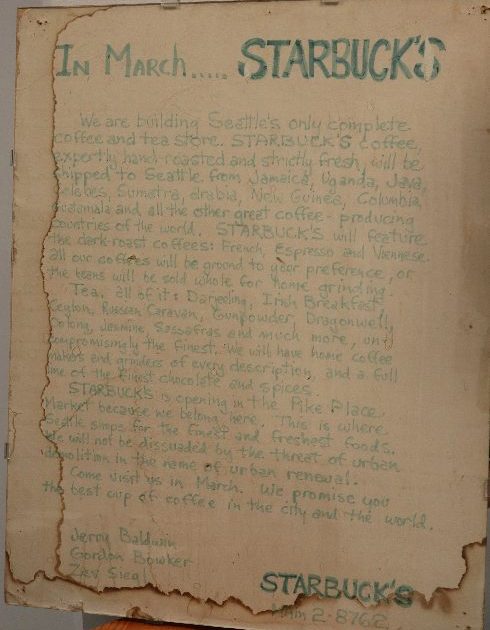 In March..... STARBUCK'S
We are building Seattle's only complete
coffee and tea store. STARBUCK'S coffee,
expertly hand-roasted and strictly fresh, will be
shipped to Seattle from Jamaica, Uganda, Java,
Celebes, Sumatra, Arabia, New Guinea, Columbia,
Guatamala and all the other great coffee-producing
countries of the world. STARBUCK'S will feature
the dark roast coffees: French, Espresso and Viennese.
all our coffees will be ground to your preference, or
the beans will be sold whole for home grinding.
Tea, all of it: Darjeeling, Irish Breakfast,
Ceylon, Russian Caravan, Gunpowder, Dragonwell,
Oolong, Jasmine, Sassafras and much more, un-
compromisingly the finest. We will have home coffee
makers and grinders of every description, and a full
line of the finest chocolate and spices.
STARBUCK'S is opening in the Pike Place
Market because we belong here. This is where
Seattle shops for the finest and freshest foods.
We will not be dissuaded by the threat of urban
demolition in the name of urban renewal.
Come visit us in March. We promise you
the best cup of coffee in the city and the world.
Jerry Baldwin
Gordon Bowker
Zev Siegl
STARBUCK'S
MAin 2-8762